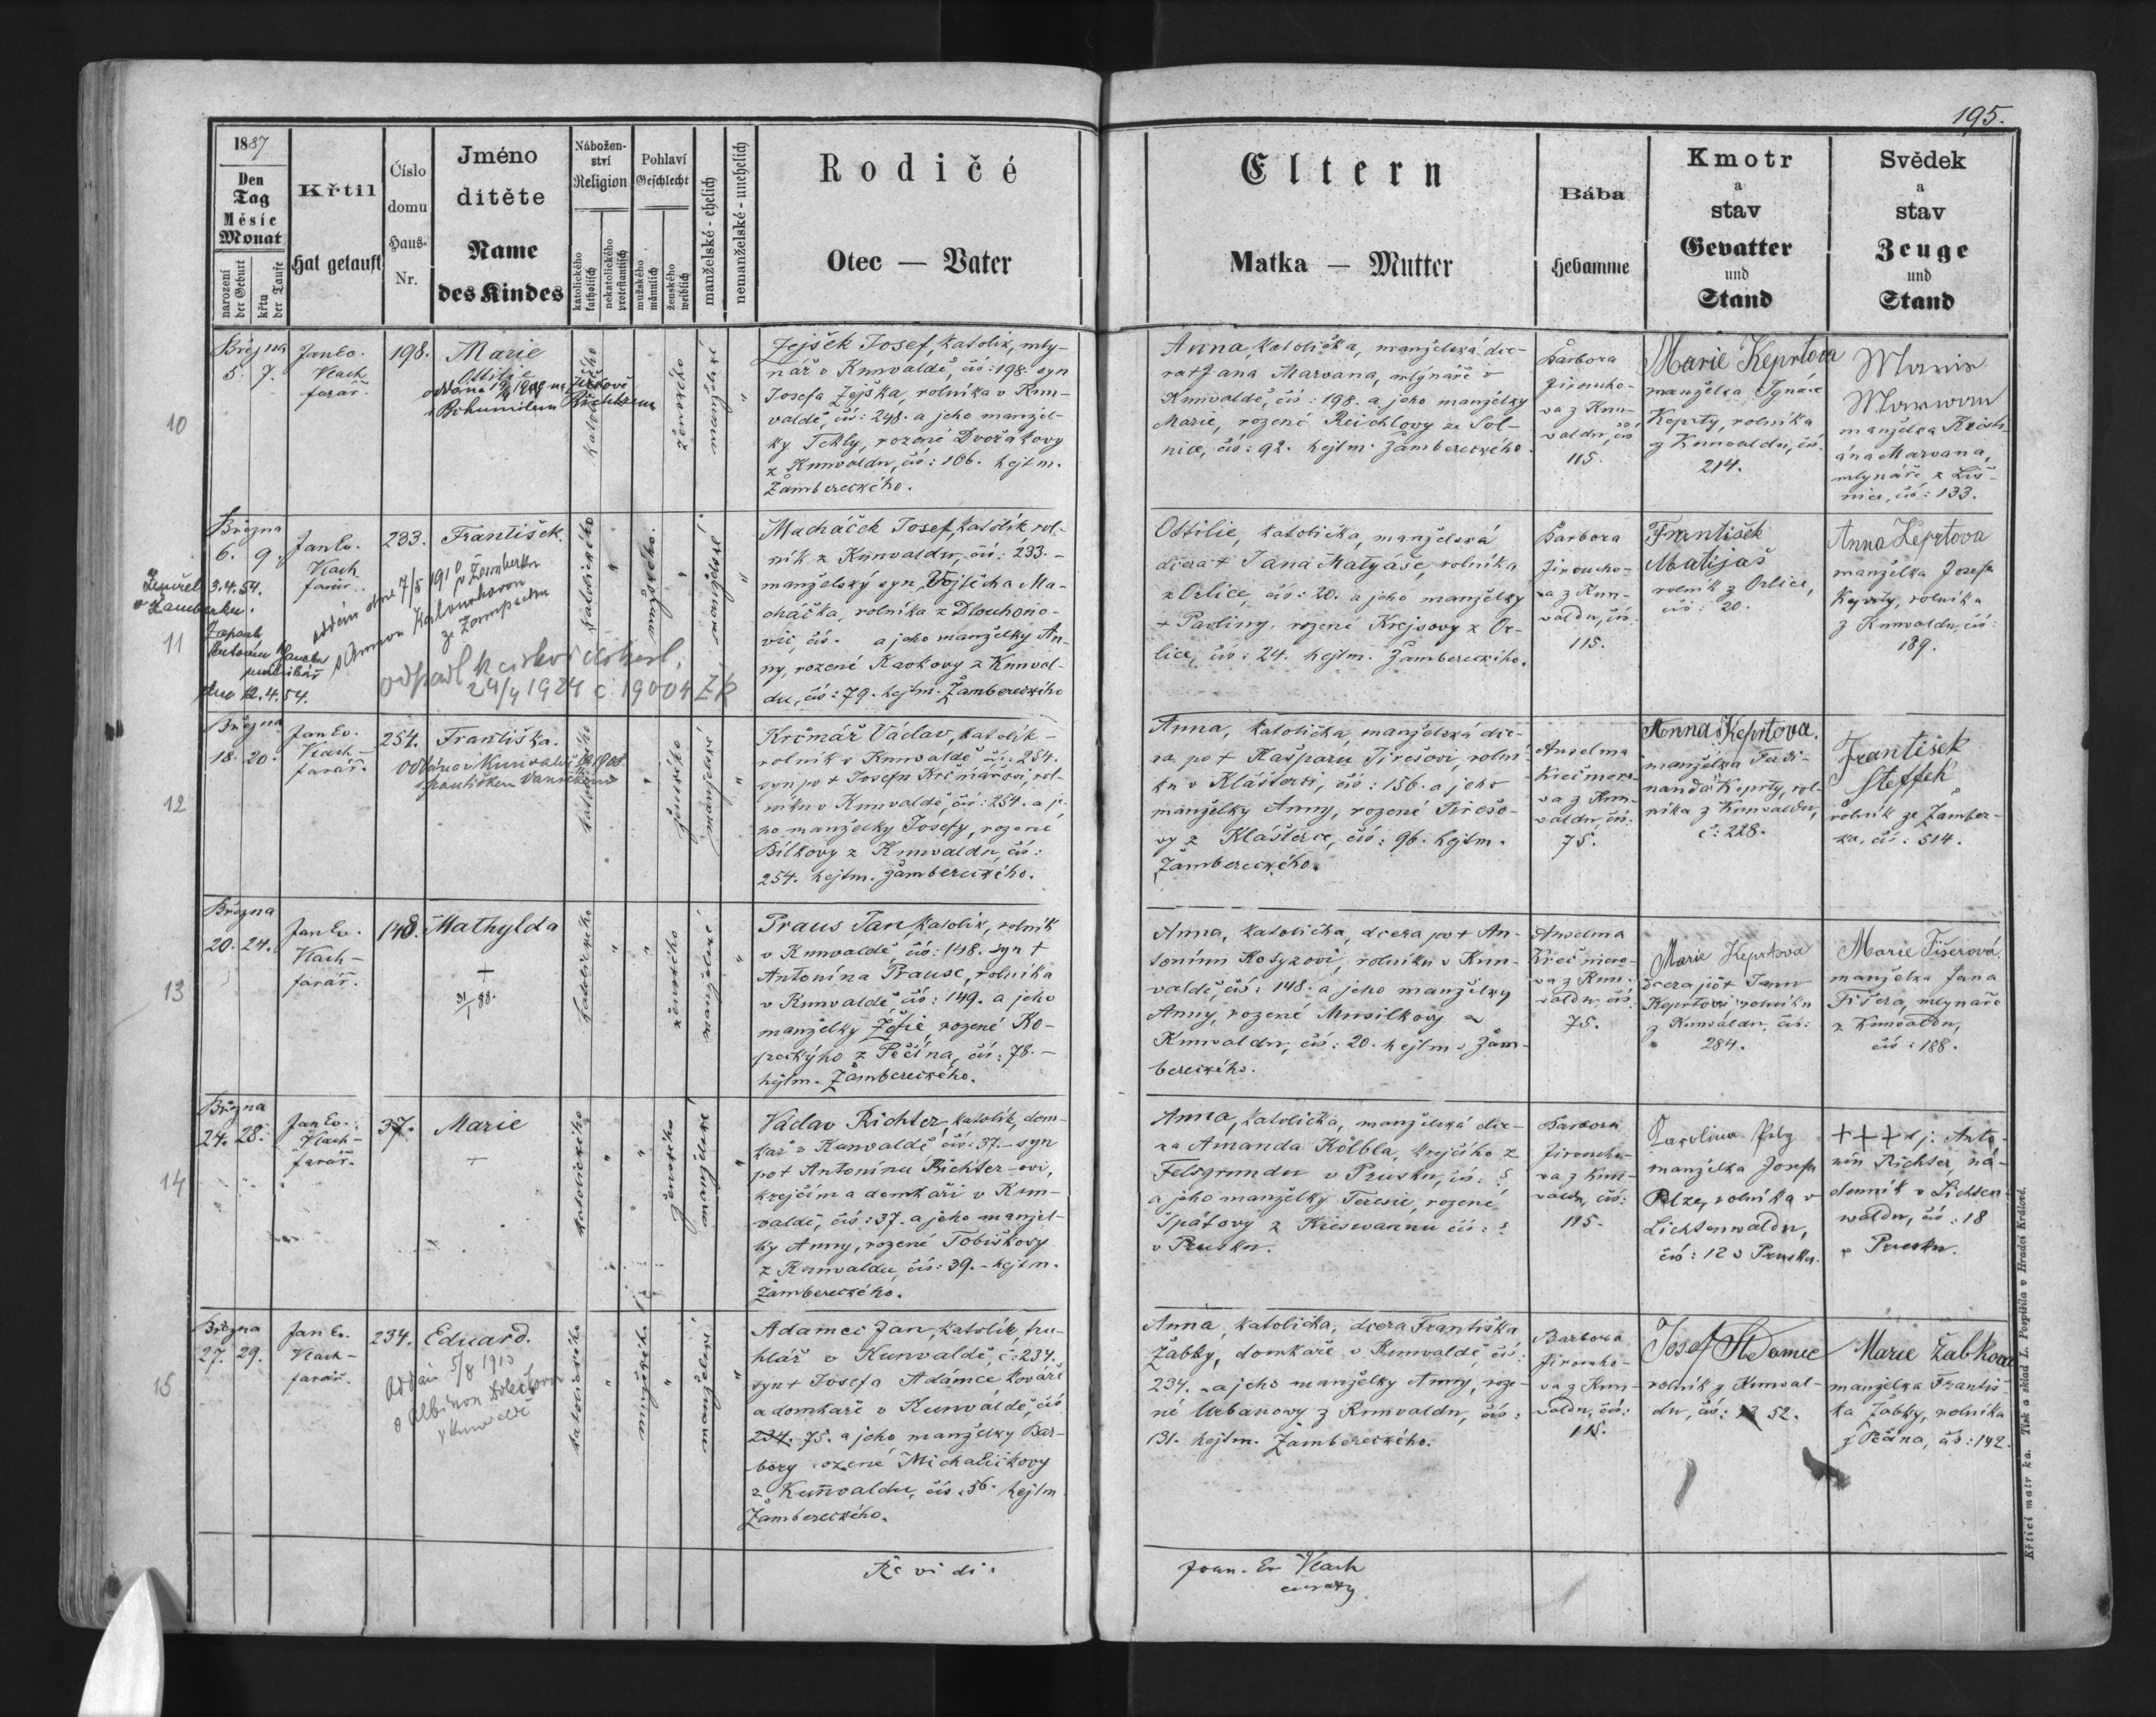 195.
1887
Den
Tag
Měsíc
Monat
narození
der Geburt
křtu
der Taufe
Křtil
Hat getauft
Číslo
domu
Haus-
Nr.
Jméno
dítěte
Name
des Kindes
Nábožen-
ství
Religion
katolického
katholisch
nekatolického
protestantisch
Pohlaví
Geschlecht
mužského
männlich
ženského
weiblich
manželské - ehelich
nemanželské - unehelich
Rodičé
Otec — Vater
Eltern
Matka — Mutter
Bába
Hebamme
Kmotr
a
stav
Gevatter
und
Stand
Svědek
a
stav
Zeuge
und
Stand
10
Března
5. 7.
Jan Ev.
Vlach
farář.
198.
Marie
Ottilie
katolického
ženského
manželské
Zejšek Josef, katolík, mly-
nář v Kunvaldě, čís: 198. syn
Josefa Zejška, rolníka v Kun-
valdě, čís: 248. a jeho manžel-
ky Tekly, rozené Dvořákovy
z Kunvaldu, čís: 106. hejtm.
Žambereckého.
Anna, katolička, manželská dce-
ra + Jana Marvana, mlynáře v
Kunvaldě, čís: 198. a jeho manželky
Marie, rozené Reichlovy ze Sol-
nice, čís: 92. hejtm. Žambereckého.
Barbora
Jiroucho-
va z Kun-
valdu, čís
115.
Marie Keprtova
manželka Ignáce
Keprty, rolníka
z Kunvaldu, čís.
214.
Marie
Marwan
manželka Kristi-
ána Marvana,
mlynáře, z Liš-
nice, čís: 133.
11
Března
6. 9.
Jan Ev.
Vlach
farář.
233.
František.
Zemřel 3.4.54.
v Žamberku.
Zapsal
dne 12.4.54.
oddán dne 7/5 1910
v Žamberku
s Annou
odpadl k církvi
24/4 1924 č. 19004 ZK
katolického
mužského.
manželské
Macháček Josef, katolík rol-
ník z Kunvaldu, čís: 233. -
manželský syn Vojtěcha Ma-
cháčka, rolníka z Dlouhoňo-
vic, čís. a jeho manželky An-
ny, rozené Kaokovy z Kunval-
du, čís: 79. hejtm. Žambereckého
Ottilie, katolička, manželská
dcera + Jana Matyáše, rolníka
z Orlice, čís: 20. a jeho manželky
+ Pavliny, rozené Krejsovy z Or-
lice, čís: 24. hejtm. Žambereckého.
Barbora
Jiroucho-
va z Kun-
valdu, čís
115.
František
Matijaš
rolník z Orlice,
čís: 20.
Anna Keprtova
manželka Josefa
Keprty, rolníka
z Kunvaldu, čís:
189.
12
Března
18. 20.
Jan Ev.
Vlach -
farář.
254.
Františka.
katolického
ženského
manželské
Krčmář Václav, katolík -
rolník v Kunvaldě, čís: 254.
syn po + Josefu Krčmářovi, rol-
níku v Kunvaldě, čís: 254. a je-
ho manželky Josefy, rozené
Bílkovy z Kunvaldu, čís:
254. hejtm. Žambereckého.
Anna, katolička, manželská dce-
ra po + Kašparu Jirešovi, rolní-
ku v Klášterci, čís: 156. a jeho
manželky Anny, rozené Jirešo-
vy z Klášterce, čís: 96. hejtm.
Žambereckého.
Anselma
Krečmero-
va z Kun-
valdu, čís:
75.
Anna Keprtova.
manželka Ferdi-
nanda Keprty, rol-
níka z Kunvaldu,
č: 228.
František
Steffek
rolník ze Žamber-
ka, čís: 514.
13
Března
20. 24.
Jan Ev.
Vlach -
farář.
148.
Mathylda
+
31/I 88.
katolického
ženského
manželské
Praus Jan, katolík, rolník
v Kunvaldě, čís: 148. syn +
Antonína Prause, rolníka
v Kunvaldě čís: 149. a jeho
manželky Žofie, rozené Ko-
preckýho z Pěčína, čís: 78. -
hejtm. Žambereckého.
Anna, katolička, dcera po + An-
tonínu Kotyzovi, rolníku v Kun-
valdě, čís: 148. a jeho manželky
Anny, rozené Musilkovy z
Kunvaldu, čís: 20. hejtm. Žam-
bereckého.
Anselma
Krečmero-
va z Kun-
valdu, čís
75.
Marie Keprtova
dcera po + Janu
Keprtovi rolníku
z Kunvaldu, čís:
284.
Marie Fišerová
manželka Jana
Fišera, mlynáře
z Kunvaldu,
čís: 188.
14
Března
24. 28.
Jan Ev.
Vlach -
farář.
37.
Marie
+
katolického
ženského
manželské
Václav Richter, katolík, dom-
kář v Kunvaldě čís: 37. - syn
po + Antonínu Richter-ovi,
krejčím a domkáři v Kun-
valdě, čís: 37. a jeho manžel-
ky Anny, rozené Tobiškovy
z Kunvaldu, čís: 39. - hejtm.
Žambereckého.
Anna, katolička, manželská dce-
ra Amanda Kölbla, krejčího z
Felsgrundu v Prusku, čís: ?
a jeho manželky Teresie, rozené
Spätovy z Kieswannu čís: ?
v Prusku.
Barbora
Jiroucho-
va z Kun-
valdu, čís:
115.
Karolina Pelz
manželka Josefa
Pelze, rolníka v
Lichtenwaldu,
čís: 12 v Prusku.
+++ t.j. Anto-
nín Richter, ná-
denník v Lichten-
waldu, čís: 18
v Prusku.
15
Března
27. 29.
Jan Ev.
Vlach -
farář.
234.
Eduard.
oddán 5/8 1913
s Albinou
v Kunvaldě
katolického
mužského.
manželské
Adamec Jan, katolík, tru-
hlář v Kunvaldě, č: 234.
syn + Josefa Adámce kováře
a domkáře v Kunvaldě, čís
234. 75. a jeho manželky Bar-
bory rozené Michaličkovy
z Kunvaldu, čís. 56. hejtm
Žambereckého.
Anna, katolička, dcera Františka
Žabky, domkáře v Kunvaldě, čís:
234. a jeho manželky Anny, roze-
né Urbanovy z Kunvaldu, čís:
131. hejtm. Žambereckého.
Barbora
Jiroucho-
va z Kun-
valdu, čís:
115.
Josef Adamec
rolník z Kunval-
du, čís: 52.
Marie Žabkova
manželka Františ-
ka Žabky, rolníka
z Pěčína, čís: 142.
Revidi.
Joan. Ev Vlach
Křticí matrika. Tisk a sklad L. Pospíšila v Hradci Králové.